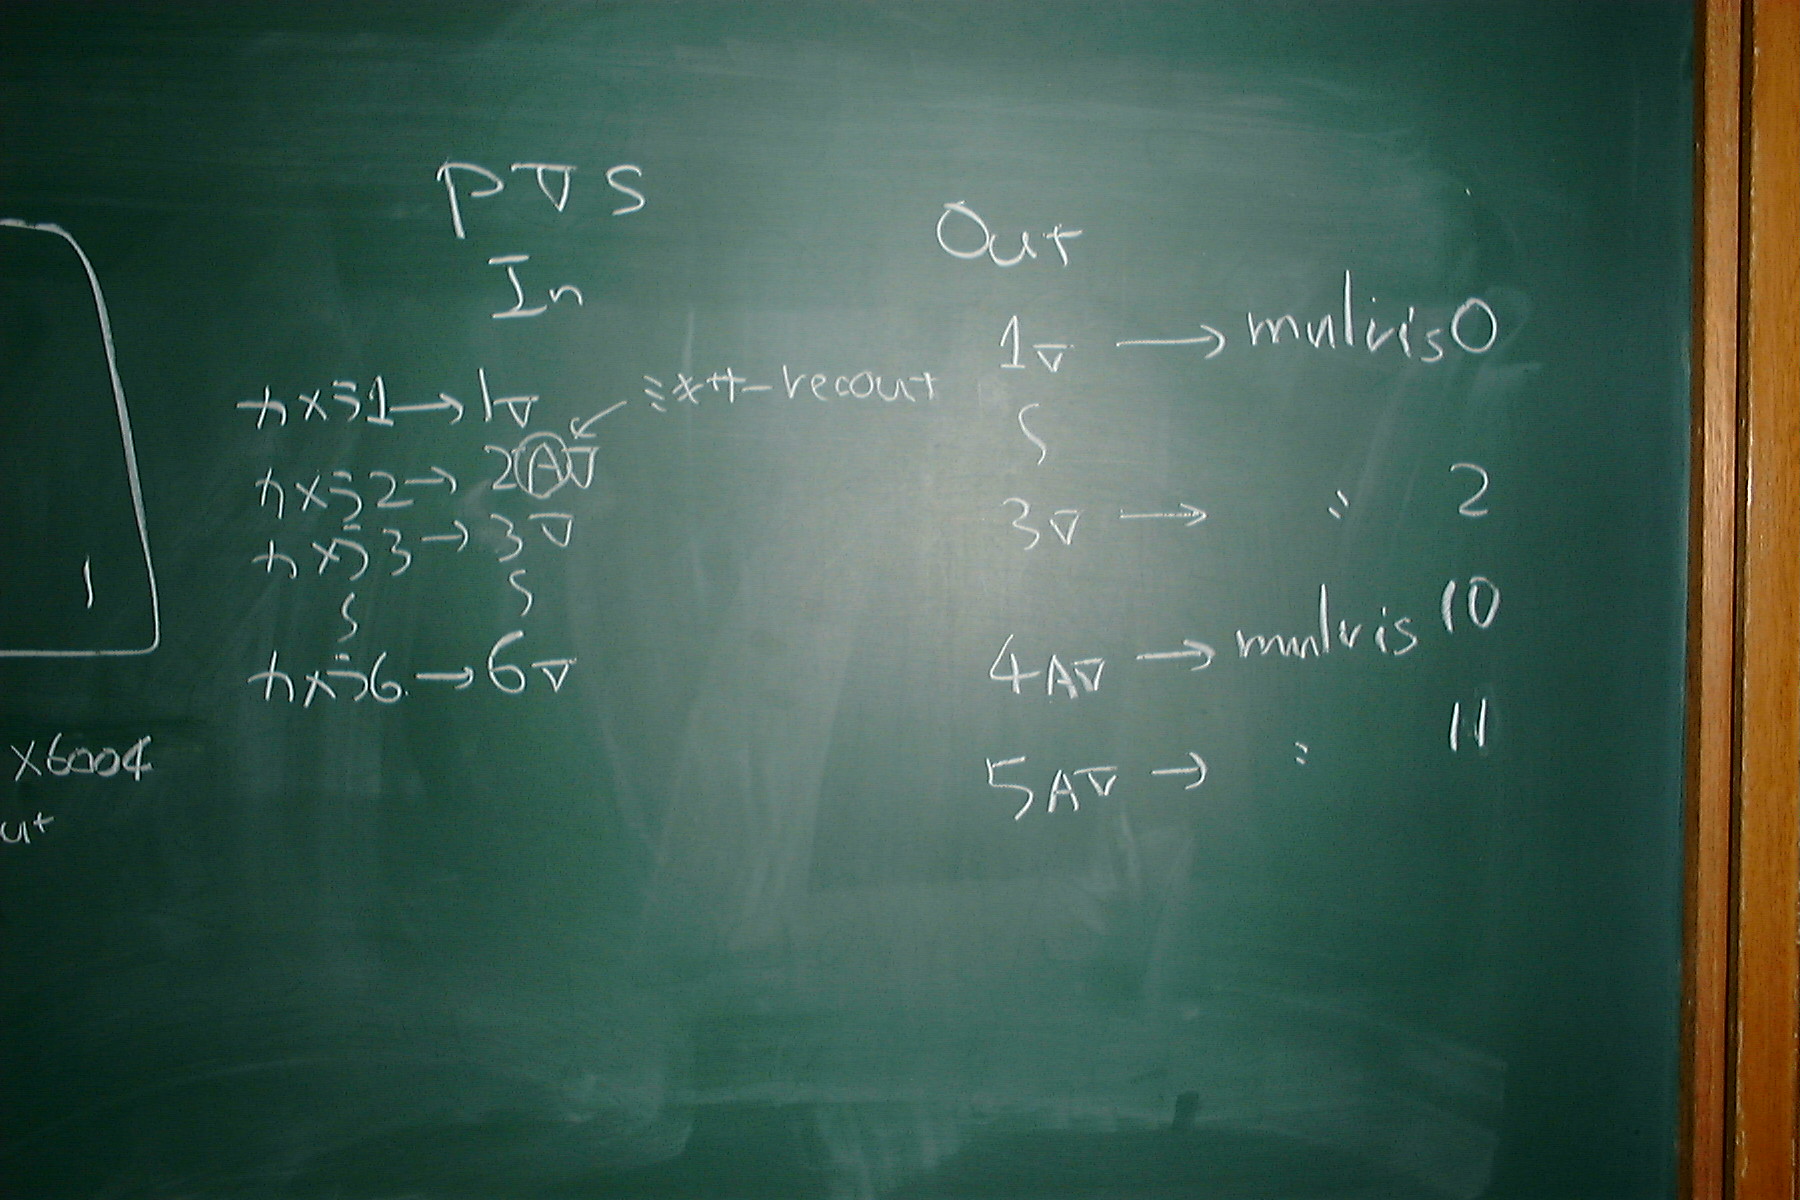 P▽S
In
カメラ1→1▽
ミキサーrecout
カメラ2→2A▽
カメラ3→3▽
カメラ6→6▽
Out
1▽→mulvis0
3▽→〃2
4A▽→mulvis10
5A▽→〃11
X6004
1